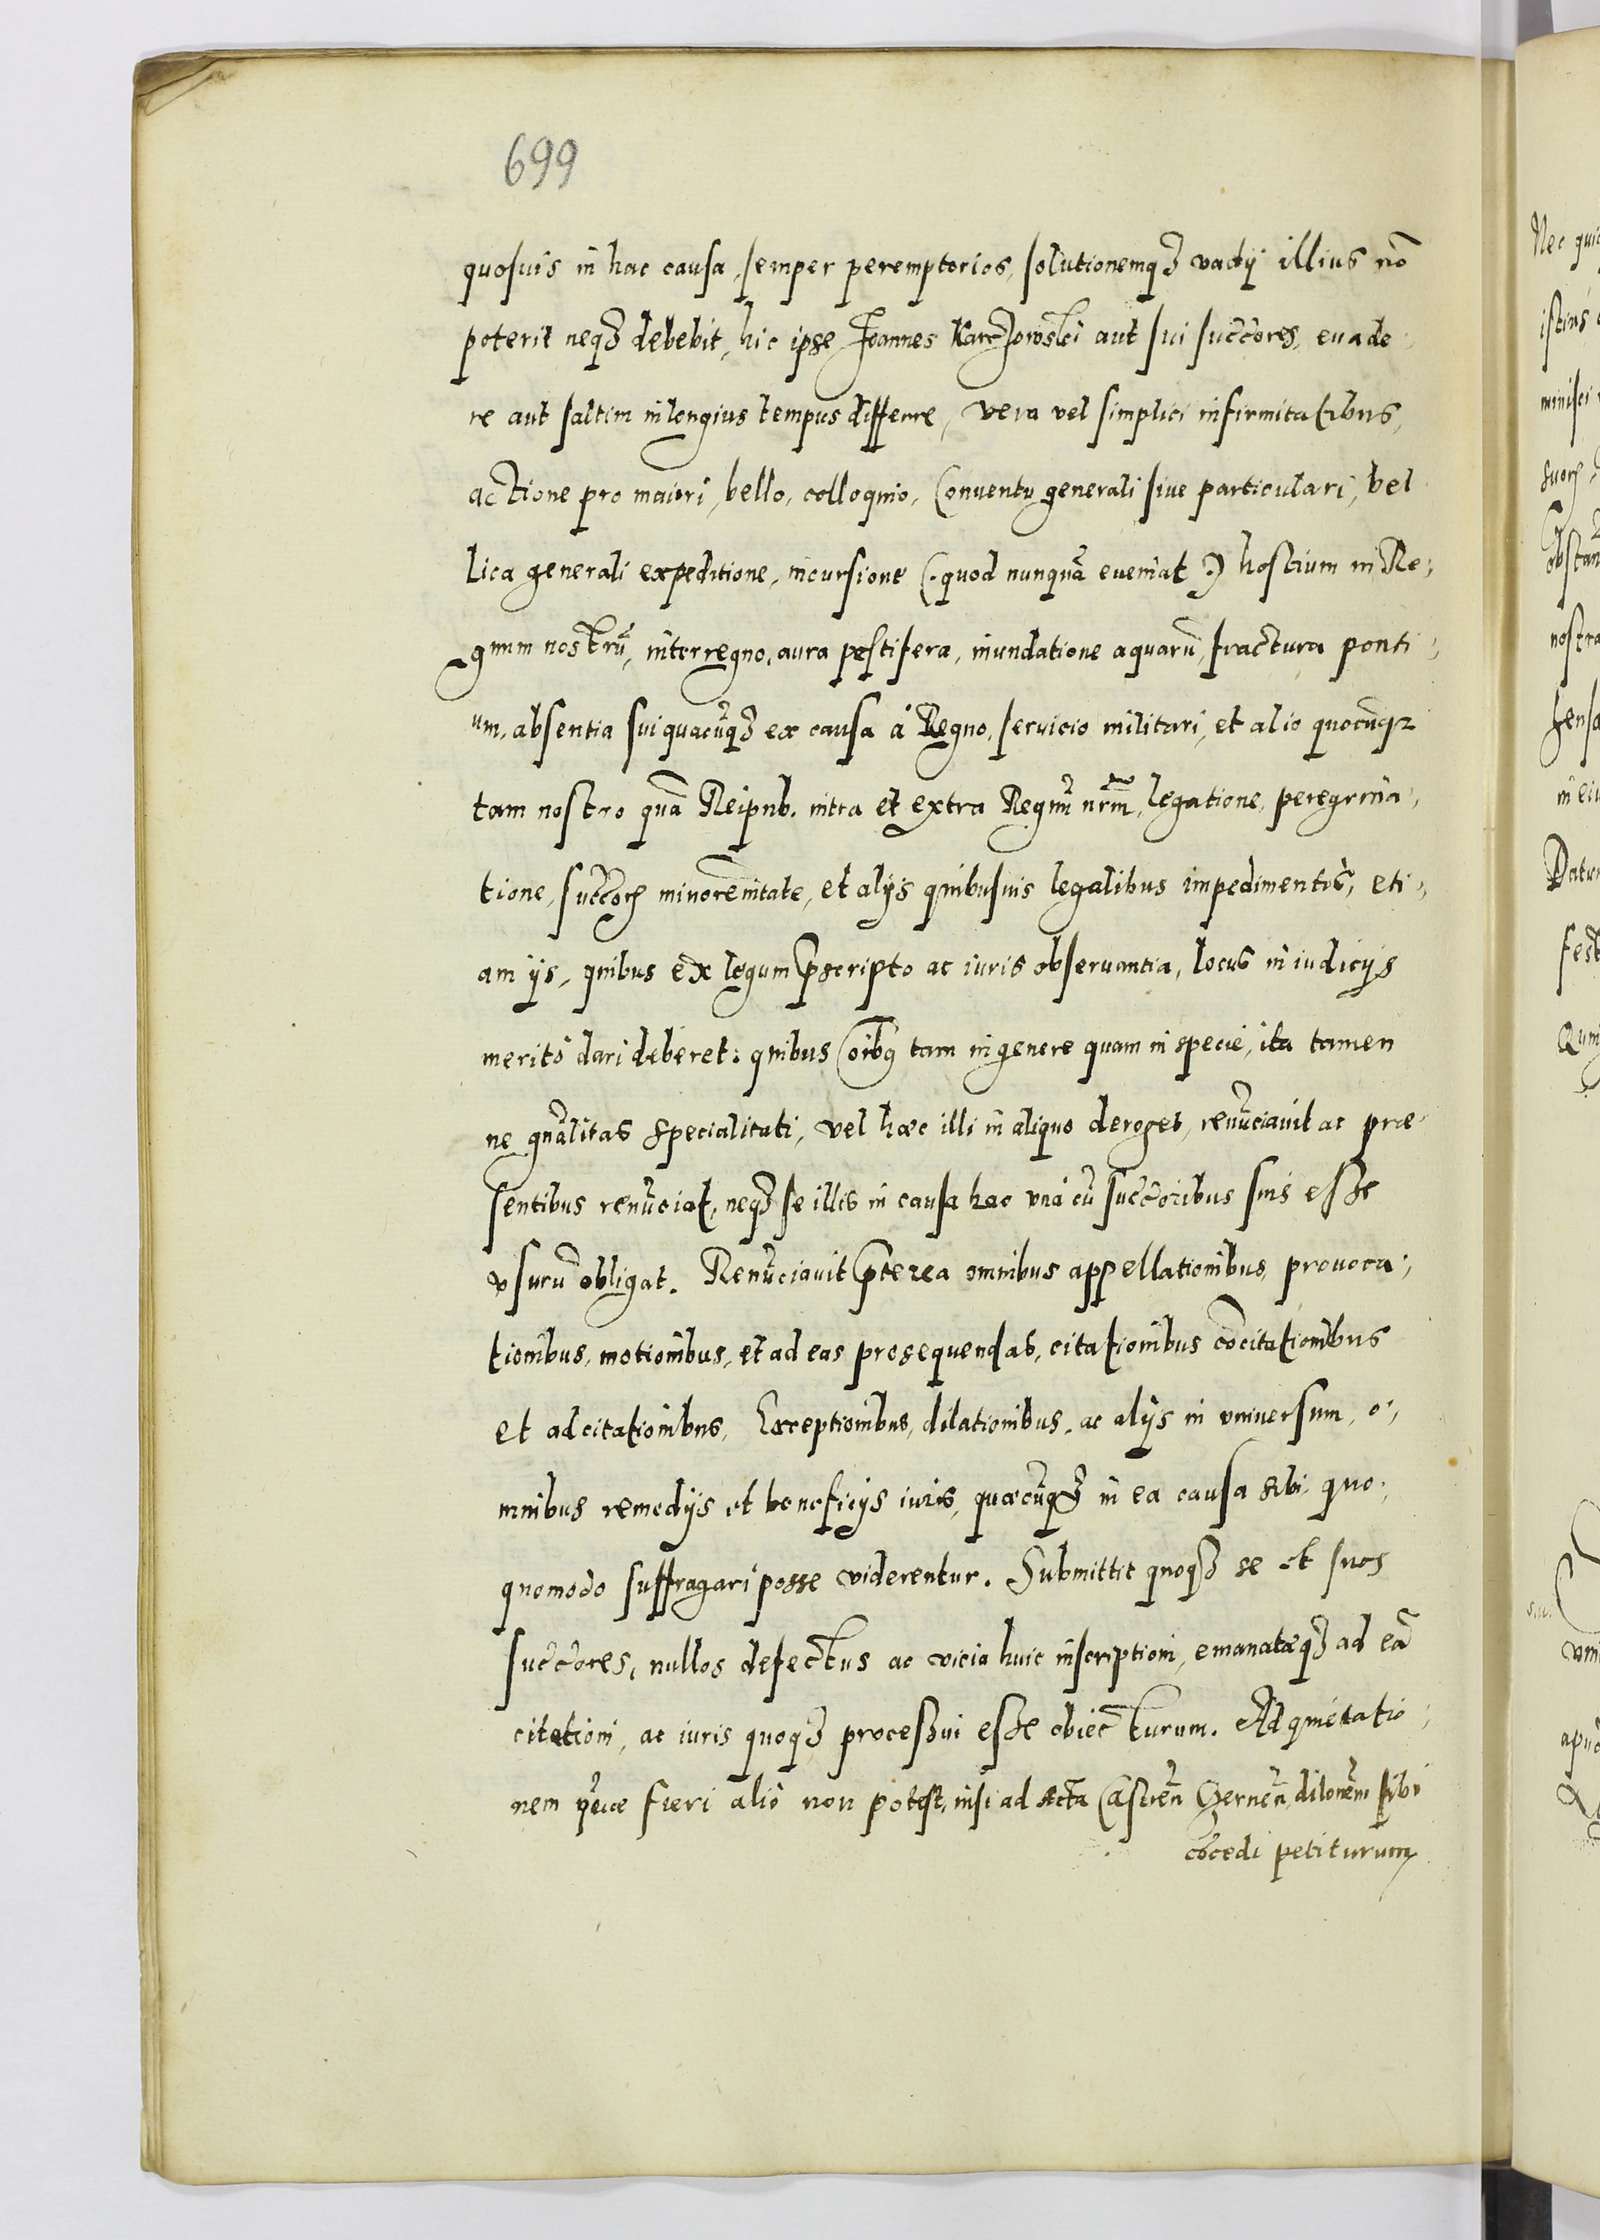 699
quosuis in hac causa, semper peremptorios, solutionemqȝ vadij illius nō
poterit neqȝ debebit, hic ipse Joannes Karczowski aut sui succores, euade
re aut saltim in longius tempus differre, vera vel simplici infirmitatibus,
actione pro maiori, bello, colloquio, Conuentu generali siue particulari, bel
lica generali expeditione, incursione (. quod nunquā eueniat .) hostium in Re,
gnum nostrū, interregno, aura pestifera, inundatione aquarū, fractura ponti,
um, absentia sui quacūqȝ ex causa à Regno, seruicio militari, et alio quocūqȝ
tam nostro quā Reipub. intra et extra Regnū nrm̄, legatione, peregrina,
tione, succoꝝ minorennitate, et alijs quibusuis legalibus impedimentis, eti,
am ijs, quibus ex legum p̄scripto ac iuris obseruantia, locus in iudicijs
meritò dari deberet: quibus oībꝫ tam in genere quam in specie, ita tamen
ne gnālitas specialitati, vel hæc illi in aliquo deroget, renūciauit ac præ
sentibus renūciat, neqȝ se illis in causa hac vnà cū succoribus suis esse
vsurū obligat. Renūciauit p̄terea omnibus appellationibus, prouoca,
tionibus, motionibus, et ad eas prosequendas, citationibus cōcitationibus
et adcitationibus, Exceptionibus, dilationibus, ac alijs in vniuersum, o,
mnibus remedijs et beneficijs iuris, quæcūqȝ in ea causa sibi quo,
quomodo suffragari posse viderentur. Submittit quoqȝ se et suos
succores, nullos defectus ac vicia huic inscriptioni, emanatæqȝ ad eā
citationi, ac iuris quoqȝ processui esse obiecturum. Ad quietatio,
nem fieri aliò non potest, nisi ad Acta Castren̄ dilonēm sibi
cōcedi petiturum